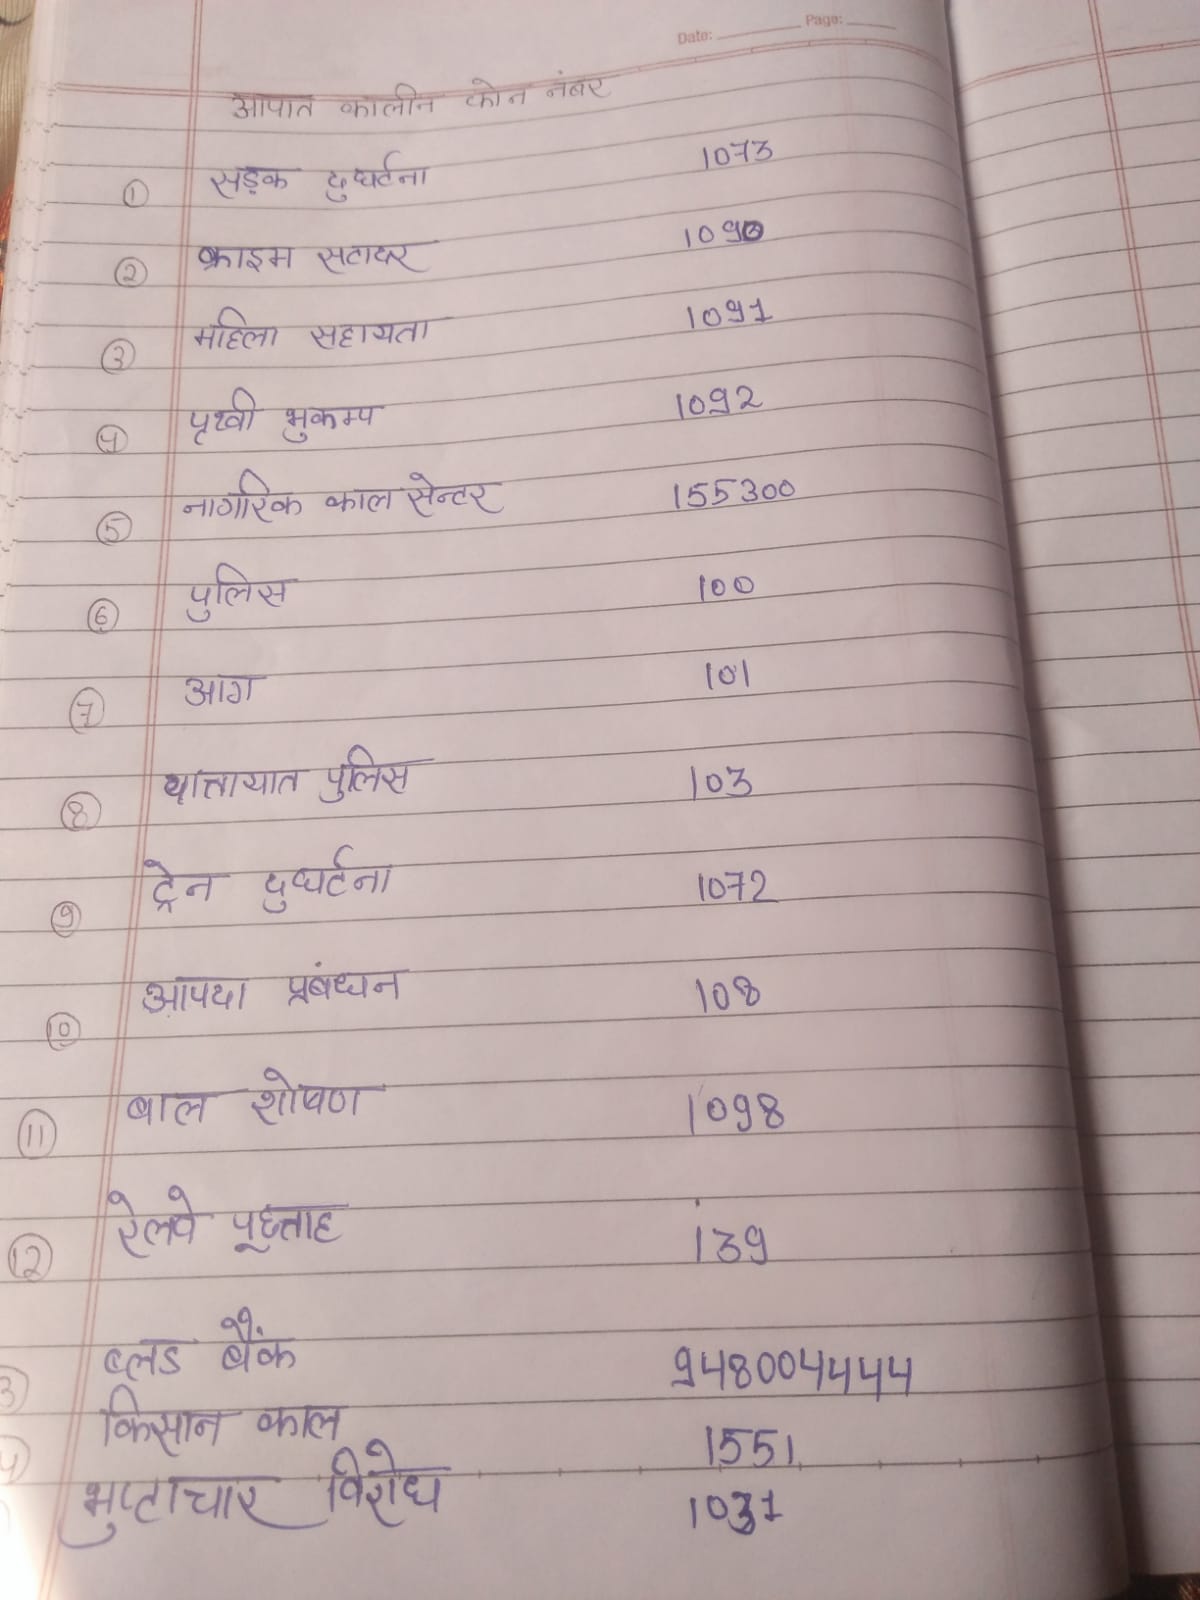 Date: ________ Page: ______
आपात कालीन फोन नंबर
① सड़क दुघर्टना 1073
② क्राइम सटापर 1090
③ महिला सहायता 1091
④ पृथ्वी भुकम्प 1092
⑤ नागरिक काल सेन्टर 155300
⑥ पुलिस 100
⑦ आग 101
⑧ यात्तायात पुलिस 103
⑨ ट्रेन दुघर्टना 1072
⑩ आपदा प्रबंधन 108
⑪ बाल शोषण 1098
⑫ रेलवे पूछ्ताह 139
3 ब्लड बैंक 948004444
4 किसान काल 1551
भुष्टाचार विरोध 1031